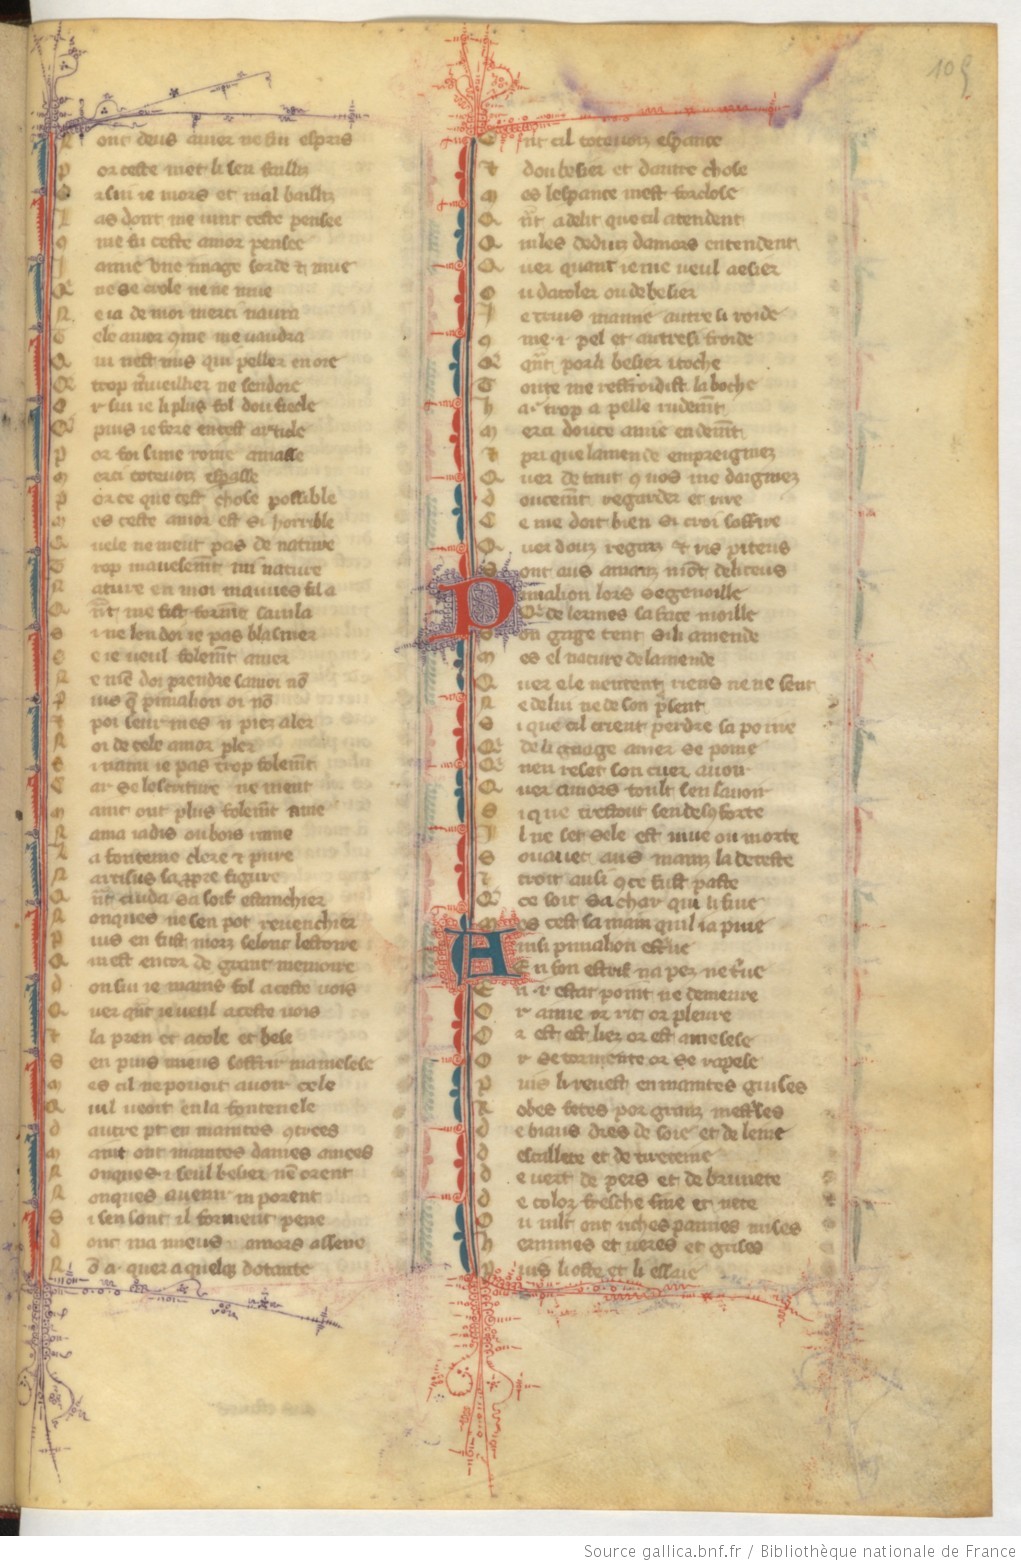 105
N onc deus amer ne fui espris
P or ceste met li sen faillir
O r sui ie mors et mal bailliz
L as dont me uint ceste pensee
C me fu ceste amor pensee
I aime une image sorde et mue
Q ne se crole ne ne mue
N e ia de moi merci naura
T ele amor cme me naudra
Q ui nest nus qui peller en ore
Q trop merueillier ne sen dore
O r sui ie li plus fol dou siecle
Q puis ie fere en cest article
P or foi
P or ce que cest chose possible
M es ceste amor est si horrible
Q uele ne ment pas de nature
T rop mauesement mi nature
N ature en moi mauues fil a
Q nt me fist forment sauila
S i ne len doi ie pas blasmer
S e ie ueul folement amer
N e men doi prendre samoi non
P uis que pimalion oi non
E t poi seur mes ii piez aler
N oi de cele amor pler
S i naim ie pas trop folement
C ar se lescriture ne ment
M aint ont plus folement ame
N ama iadis ou bois rame
A la fonteine clere et pure
N arcisus sa propre figure
Q nt cuida sa soif estanchier
N onques ne sen pot reuenchier
P uis en fust morz selonc lestoire
Q ui est encor de grant memoire
D on sui ie mains fol a ceste uois
Q uer qnt ie ueul a ceste uois
E t la pren et acole et bese
S en puis mieus soffrir ma mesese
M es cil ne pouoit auoir cele
Q uil ueoit en la fontenele
D autre part en maintes contrees
M aint ont maintes dames amees
N onques i seul besier nen orent
S i sen sont il forment pene
D ont ma mieus amors assene
N on a quer a quelque dotance
O nt cil toteuoiz esperance
E t dou besier et dautre chose
M es lesperance mest forclose
Q nt a delit que cil atendent
Q ui les deduiz damors entendent
Q uer quant ie me ueul aesier
O u dacoler ou de besier
I e truis mamie autresi roide
C me i pel et autresi froide
Q qnt por li besier i toche
T oute me reffroidist la boche
H a trop a pelle rudement
M erci douce amie en dement
E t pri que lamende empreigniez
Q uer de tant q uos me daigniez
D oucement regarder et rire
C e me doit bien si croi soffire
Q uer douz regarz et ris piteus
S ont aus amanz mont deliteus
P imalion lors sagenoille
Q de lermes sa face moille
S on gage tent si li amende
M es el na cure de lamende
Q uer ele nentent riens ne ne sent
N e de lui ne de son present
S i que cil crient perdre sa poine
Q de li chaoge amer se poine
Q nen reset son cuer auoir
Q uer amors toult sen sauoir
S i que trestout sen desconforte
I l ne set sele est uiue ou morte
S ouauet aus mainz la deteste
E t croit ausi q ce fust paste
Q ce soit sa char qui li fuie
M es cest sa main quil ia puie
A insi pimalion estriue
E n son estrif na pez ne triue
E n i estat point ne demeure
O r aime or rit or pleure
O r est liez or est a mesese
O r se tormente or se rapese
P uis li reuest en maintes guises
R obes fetes por granz mestres
D e biaus dras de soie et de leine
D escallete et de tireteine
D e uert de pers et de brunete
D e color fresche fine et nete
O u mlt ont riches pannes mises
H ermines et ueres et grises
P uis li oste et li essaie
Source gallica.bnf.fr / Bibliothèque nationale de France